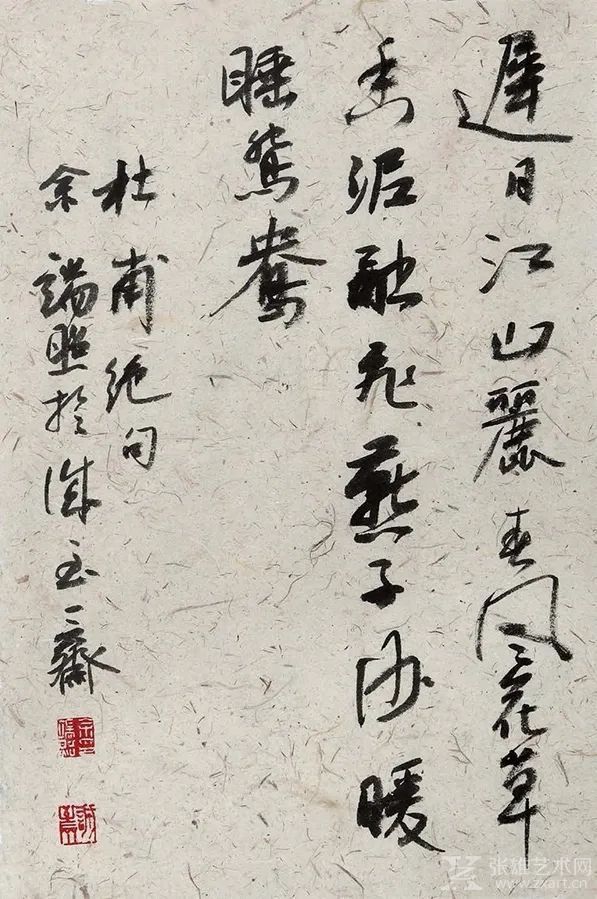 遲日江山麗春风花草
香泥融飞燕子沙暖
睡鸳鸯
杜甫绝句
余端照於诚玉斋
张雄艺术网
www.zxart.cn